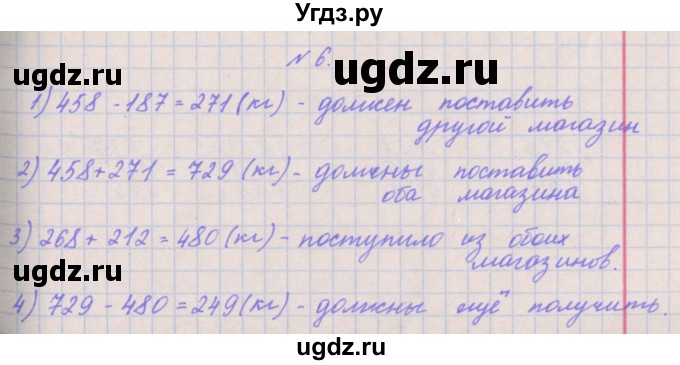 Угдз.ру
ugdz.ru ugdz.ru
№ 6.
1) 458 - 187 = 271 (кг) - должен поставить
другой магазин
ugdz.ru
2) 458 + 271 = 729 (кг) - должны поставить
оба магазина
ugdz.ru
3) 268 + 212 = 480 (кг) - поступило из обоих
магазинов.
ugdz.ru ugdz.ru
4) 729 - 480 = 249 (кг) - должны ещё получить.
ugdz.ru